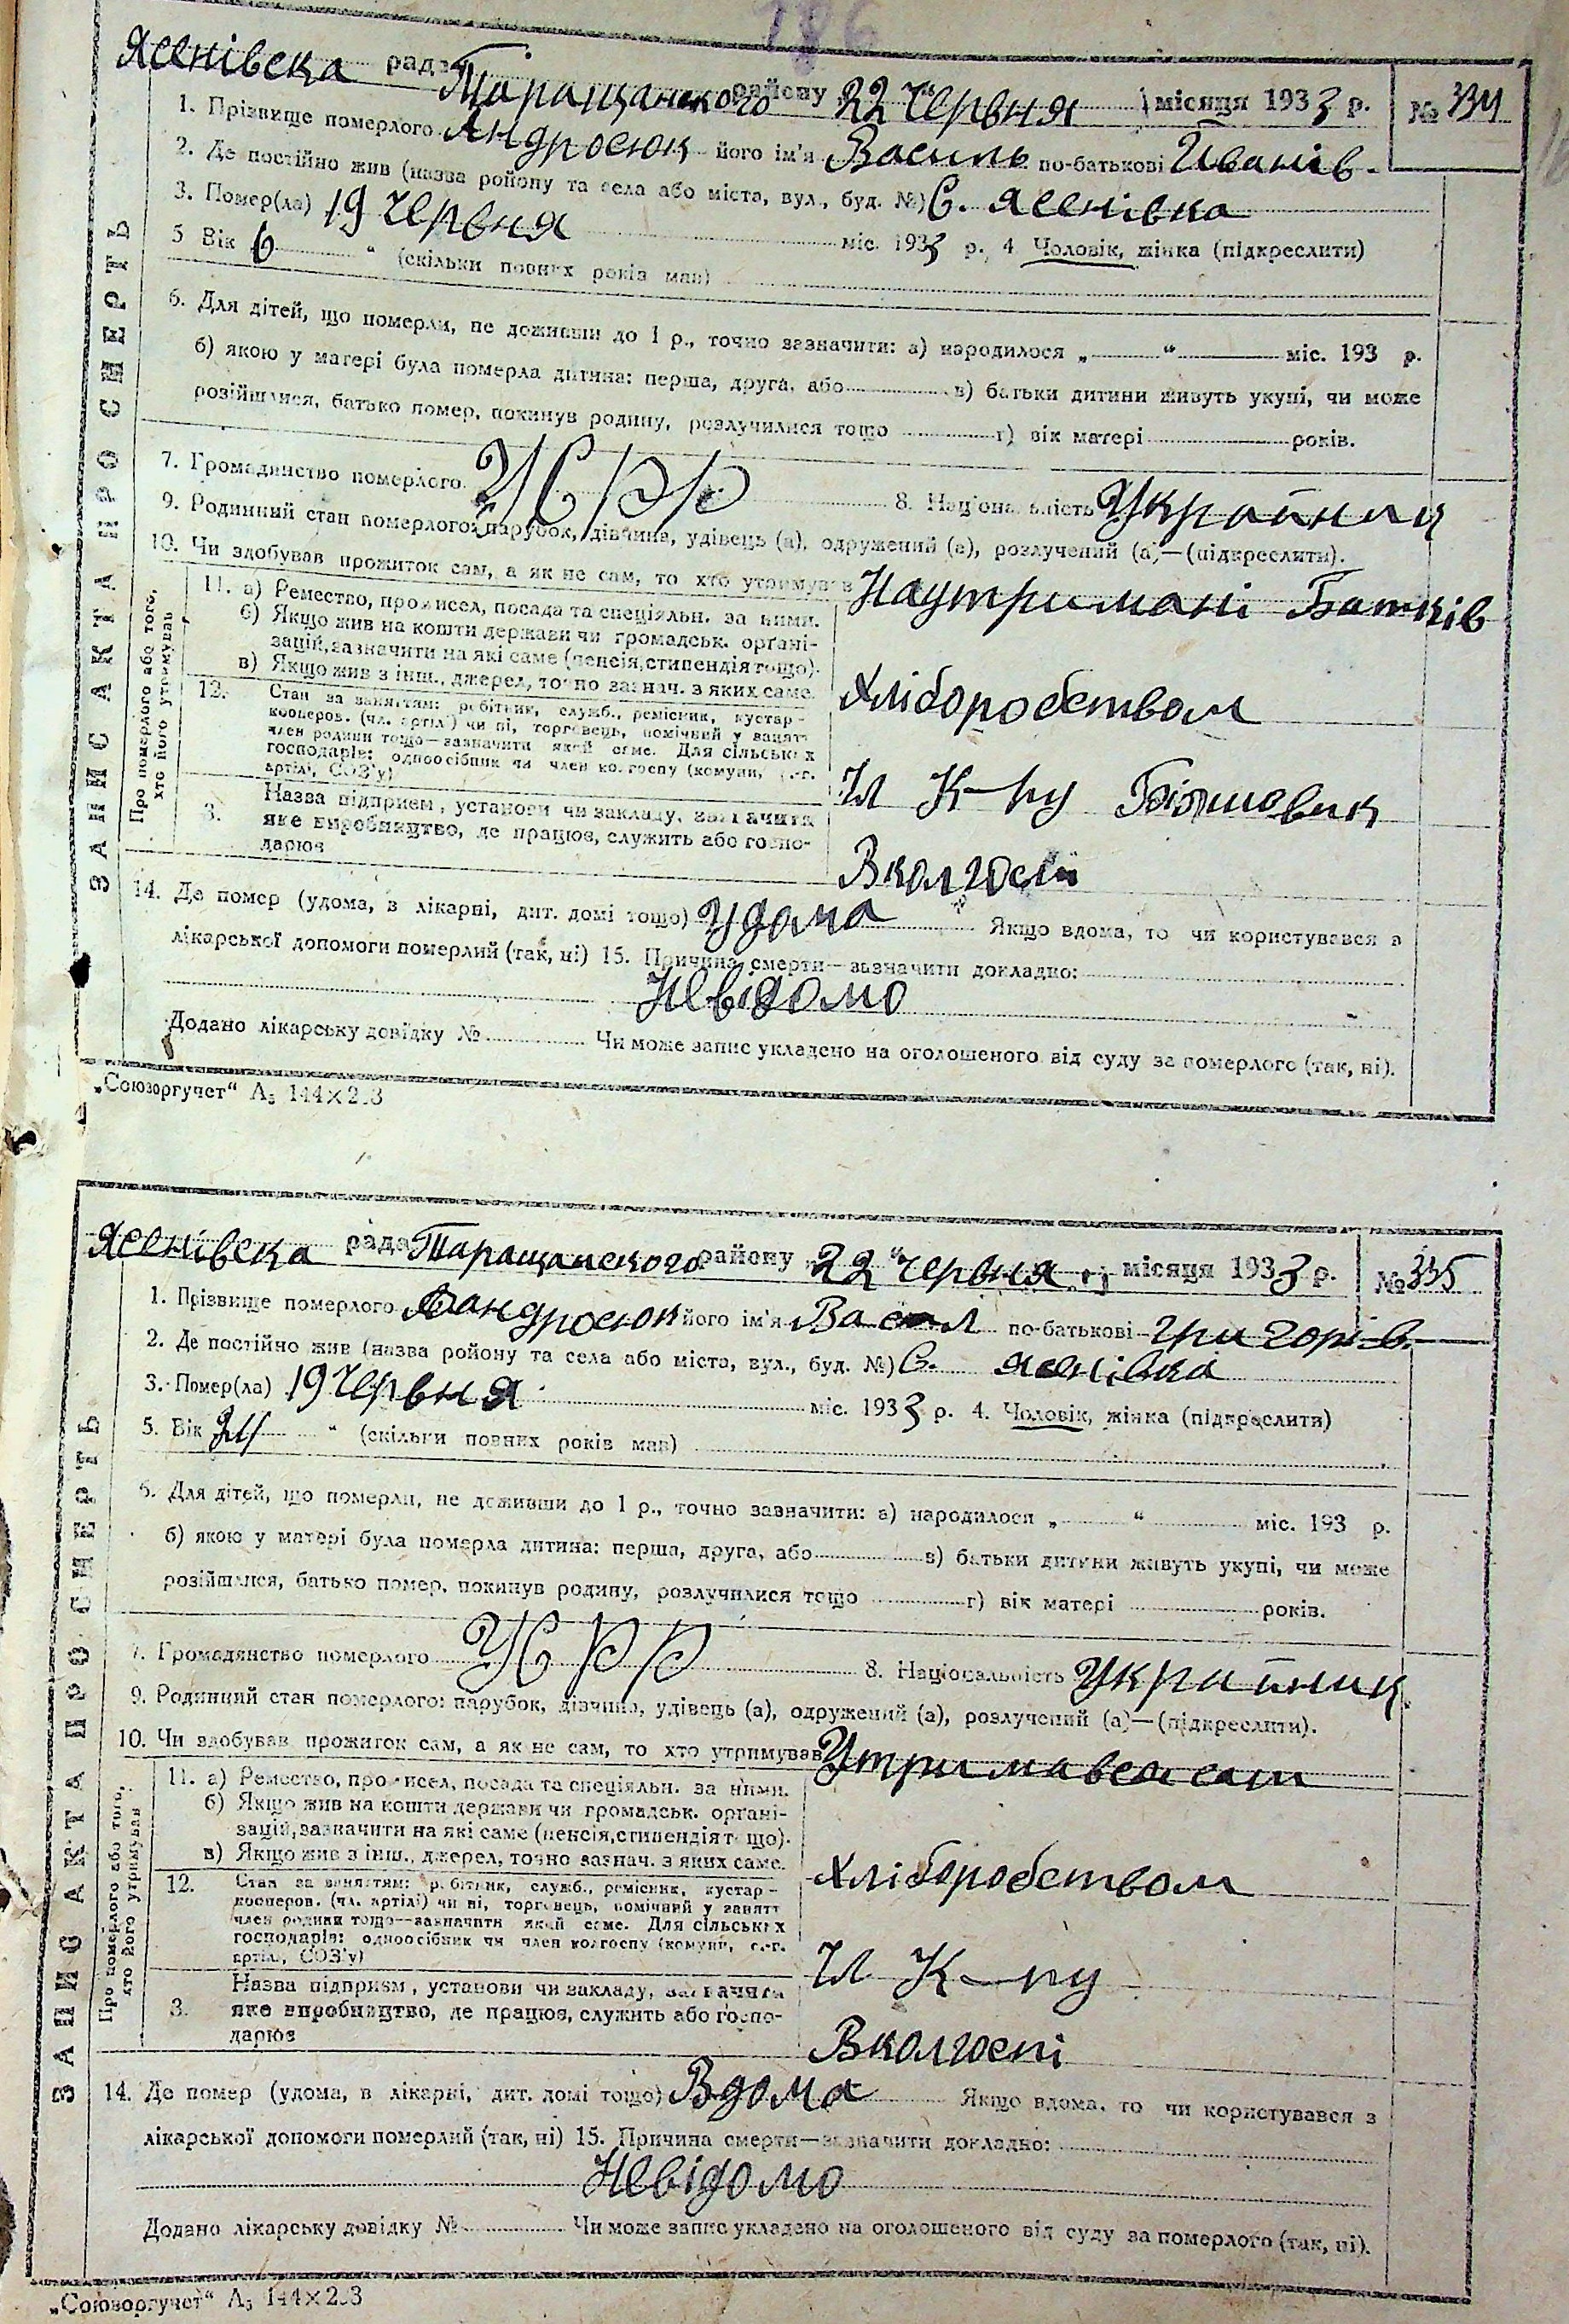 186
Ясенівська рада Таращанського району „22“ Червня місяця 1933 р. № 334
1. Прізвище померлого Андросюк його ім'я Василь по-батькові Иванів.
2. Де постійно жив (назва ройону та села або міста, вул., буд. №) С. Ясенівка
3. Помер(ла) 19 Червня міс. 1933 р. 4. Чоловік, жінка (підкреслити)
5 Вік 6 „ (скільки повних років мав)
6. Для дітей, що померли, не доживши до 1 р., точно зазначити: а) народилося „ “ міс. 193 р.
б) якою у матері була померла дитина: перша, друга, або в) батьки дитини живуть укупі, чи може
розійшлися, батько помер, покинув родину, розлучилися тощо г) вік матері років.
7. Громадянство померлого УСРР 8. Національність Украйниц
9. Родинний стан померлого: парубок, дівчина, удівець (а), одружений (а), розлучений (а)—(підкреслити).
10. Чи здобував прожиток сам, а як не сам, то хто утримував Наутримані Батьків
11. а) Ремество, промисел, посада та спеціяльн. за ними.
б) Якщо жив на кошти держави чи громадськ. органі-
зацій, зазначити на які саме (пенсія, стипендія тощо).
в) Якщо жив з інш., джерел, точно зазнач. з яких саме.
Хліборобством
12. Стан за заняттям: робітник, служб., ремісник, кустар-
кооперов. (чл. артілі) чи ні, торговець, помічний у занятт
член родини тощо—зазначити який саме. Для сільських
господарів: одноосібник чи член колгоспу (комуни, с.-г.
артілі, СОЗ'у)
Чл К-пу Більшовик
3. Назва підприєм, установи чи закладу, зазначити
яке виробництво, де працює, служить або госпо-
дарює
В колгоспі
Про померлого або того, хто його утримував
14. Де помер (удома, в лікарні, дит. домі тощо) Удома Якщо вдома, то чи користувався з
лікарської допомоги померлий (так, ні) 15. Причина смерти—зазначити докладно:
Невідомо
Додано лікарську довідку № Чи може запис укладено на оголошеного від суду за померлого (так, ні).
ЗАПИС АКТА ПРО СМЕРТЬ
„Союзоргучет“ А₅ 144×203
Ясенівська рада Таращанського району „22“ Червня місяця 1933 р. № 335
1. Прізвище померлого Андросюк його ім'я Васил по-батькові Григорів.
2. Де постійно жив (назва ройону та села або міста, вул., буд. №) С. Ясенівка
3. Помер(ла) 19 Червня міс. 1933 р. 4. Чоловік, жінка (підкреслити)
5. Вік 34 „ (скільки повних років мав)
6. Для дітей, що померли, не доживши до 1 р., точно зазначити: а) народилося „ “ міс. 193 р.
б) якою у матері була померла дитина: перша, друга, або в) батьки дитини живуть укупі, чи може
розійшлися, батько помер, покинув родину, розлучилися тощо г) вік матері років.
7. Громадянство померлого УСРР 8. Національність Украйниц.
9. Родинний стан померлого: парубок, дівчина, удівець (а), одружений (а), розлучений (а)—(підкреслити).
10. Чи здобував прожиток сам, а як не сам, то хто утримував Утримавсь сам
11. а) Ремество, промисел, посада та спеціяльн. за ними.
б) Якщо жив на кошти держави чи громадськ. органі-
зацій, зазначити на які саме (пенсія, стипендія тощо).
в) Якщо жив з інш., джерел, точно зазнач. з яких саме.
Хліборобством
12. Стан за заняттям: робітник, служб., ремісник, кустар-
кооперов. (чл. артілі) чи ні, торговець, помічний у занятт
член родини тощо—зазначити який саме. Для сільських
господарів: одноосібник чи член колгоспу (комуни, с.-г.
артілі, СОЗ'у)
Чл К-пу
3. Назва підприєм, установи чи закладу, зазначити
яке виробництво, де працює, служить або госпо-
дарює
В колгоспі
Про померлого або того, хто його утримував
14. Де помер (удома, в лікарні, дит. домі тощо) Вдома Якщо вдома, то чи користувався з
лікарської допомоги померлий (так, ні) 15. Причина смерти—зазначити докладно:
Невідомо
Додано лікарську довідку № Чи може запис укладено на оголошеного від суду за померлого (так, ні).
ЗАПИС АКТА ПРО СМЕРТЬ
„Союзоргучет“ А₅ 144×203